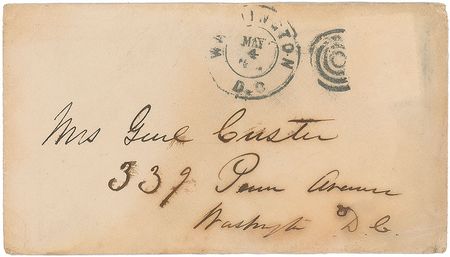 WASHINGTON
MAY
4
D.C.
Mrs Genl Custer
339 Penn Avenue
Washington D.C.